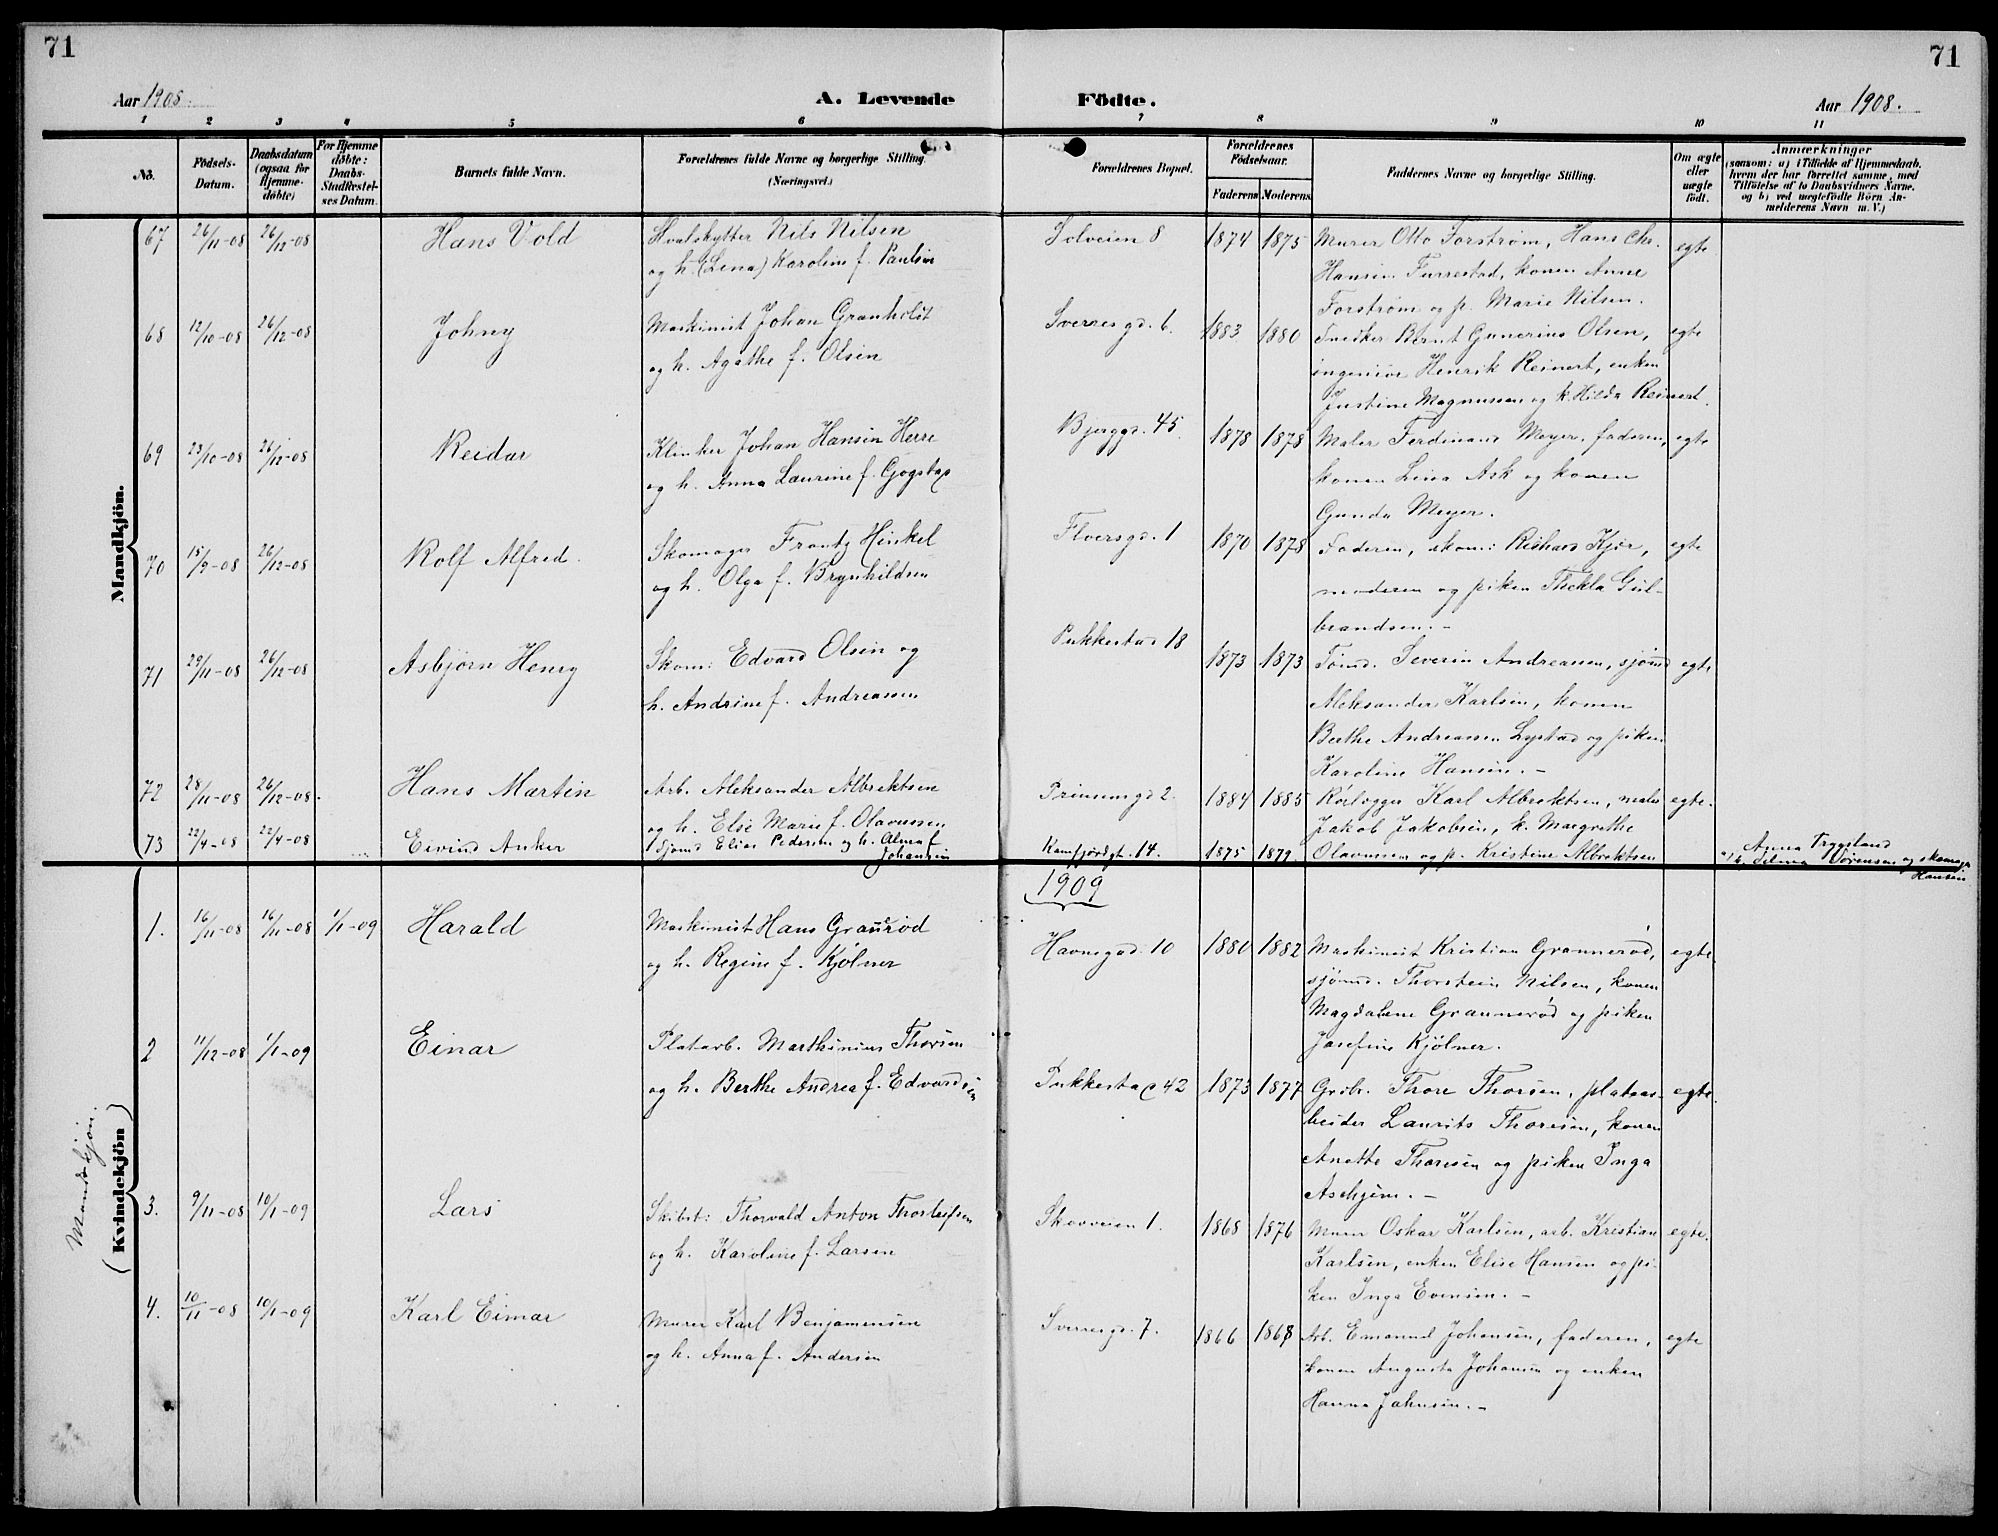 71
71
Aar 1908.
A. Levende
Födte.
Aar 1908.
1 2 3 4 5 6 7 8 9 10 11
No.
Födsels-Datum.
Daabsdatum (ogsaa for Hjemme-döbte)
For Hjemme döbte: Daabs-Stadfæstel-ses Datum.
Barnets fulde Navn.
Forældrenes fulde Navne og borgerlige Stilling. (Næringsvei.)
Forældrenes Bopæl.
Forældrenes Födselsaar.
Faderens Moderens
Faddernes Navne og borgerlige Stilling.
Om ægte eller uægte födt.
Anmærkninger
(saasom: a) i Tilfælde af Hjemmedaab,
hvem der har forrettet samme, med
Tilföielse af to Daabsvidners Navne,
og b) ved uægtefödte Börn An-
melderens Navn m. V.)
Mandkjön.
67 26/11-08 26/12-08 Hans Vold Hvalskytter Nils Nilsen Solveien 8 1874 1875 Murer Otto Forström, Hans Chr. egte
og h. (Lena) Karoline f. Paulsen Hansen Furrestad, konen Anne
Forström og p. Marie Nilsen.
68 12/10-08 26/12-08 Johny Maskinist Johan Granholdt Sverresgd. 6 1883 1880 Snedker Bernt Gunerius Olsen, egte
og h. Agathe f. Olsen ingeniör Henrik Reinert, enken
Justine Magnussen og k. Hilda Reinert.
69 23/10-08 26/12-08 Reidar Klinker Johan Hansen Herre Bjerggd. 45. 1878 1878 Maler Ferdinand Meyer, faderen, egte
og h. Anna Laurine f. Gogstad konen Lina Ask og konen
Gunda Meyer.
70 15/9-08 26/12-08 Rolf Alfred. Skomager Frantz Hinkel Flversgd. 1 1870 1878 Faderen, skom: Rikhard Kjær, egte
og h. Olga f. Brynhildsen moderen og piken Thekla Gul-
brandsen. -
71 29/11-08 26/12-08 Asbjørn Henry Skom: Edvard Olsen og Pukkestad 18 1873 1873 Tømd. Severin Andreassen, sjømd egte
h. Andrine f. Andreassen Aleksander Karlsen, konen
Berthe Andreassen Lystad og piken
Karoline Hansen. -
72 28/11-08 26/12-08. Hans Martin Arb. Aleksander Albrektsen Prinsensgd 2. 1884 1885 Rörlægger Karl Albrektsen, maler egte.
og h. Else Marie f. Olavussen Jakob Jakobsen, k. Margrethe
73 22/4-08 22/4-08 Eivind Anker Sjømd Elias Pedersen og h. Alma f. Johansen Kamfjordgt. 14. 1875 1879 Olavussen og p. Kristine Albrektsen
Anna Trygsland
a) h. Selma Sörensen og skomager
Hansen
1909
Mandkjön.
(Kvindekjön)
1. 16/11-08 16/11-08 1/1-09 Harald Maskinist Hans Granerød Havnegad. 10 1880 1882 Maskinist Kristian Grannerød, egte
og h. Regine f. Kjølner sjømd. Thorstein Nilsen, konen
Magdalene Grannerød og piken
Josefine Kjølner.
2 11/12-08 1/1-09 Einar Platarb. Marthinius Thorsen Pukkestad 42 1873 1877 Grbr. Thore Thorsen, platear- egte.
og h. Berthe Andrea f. Edvardsen beider Laurits Thoresen, konen
Anette Thoresen og piken Inga
Askjem. -
3. 9/11-08 10/1-09 Lars Skibst: Thorvald Anton Thorleifsen Skovveien 1. 1868 1876 Murer Oskar Karlsen, arb. Kristian egte.
og h. Karoline f. Larsen Karlsen, enken Elise Hansen og pi-
ken Inga Evensen. -
4. 10/11-08 10/1-09 Karl Eimar Murer Karl Benjamensen Sverresgd. 7. 1866 1868 Arb. Emanuel Johansen, faderen, egte
og h. Anna f. Andersen konen Augusta Johansen og enken
Hanna Jahnsen. -